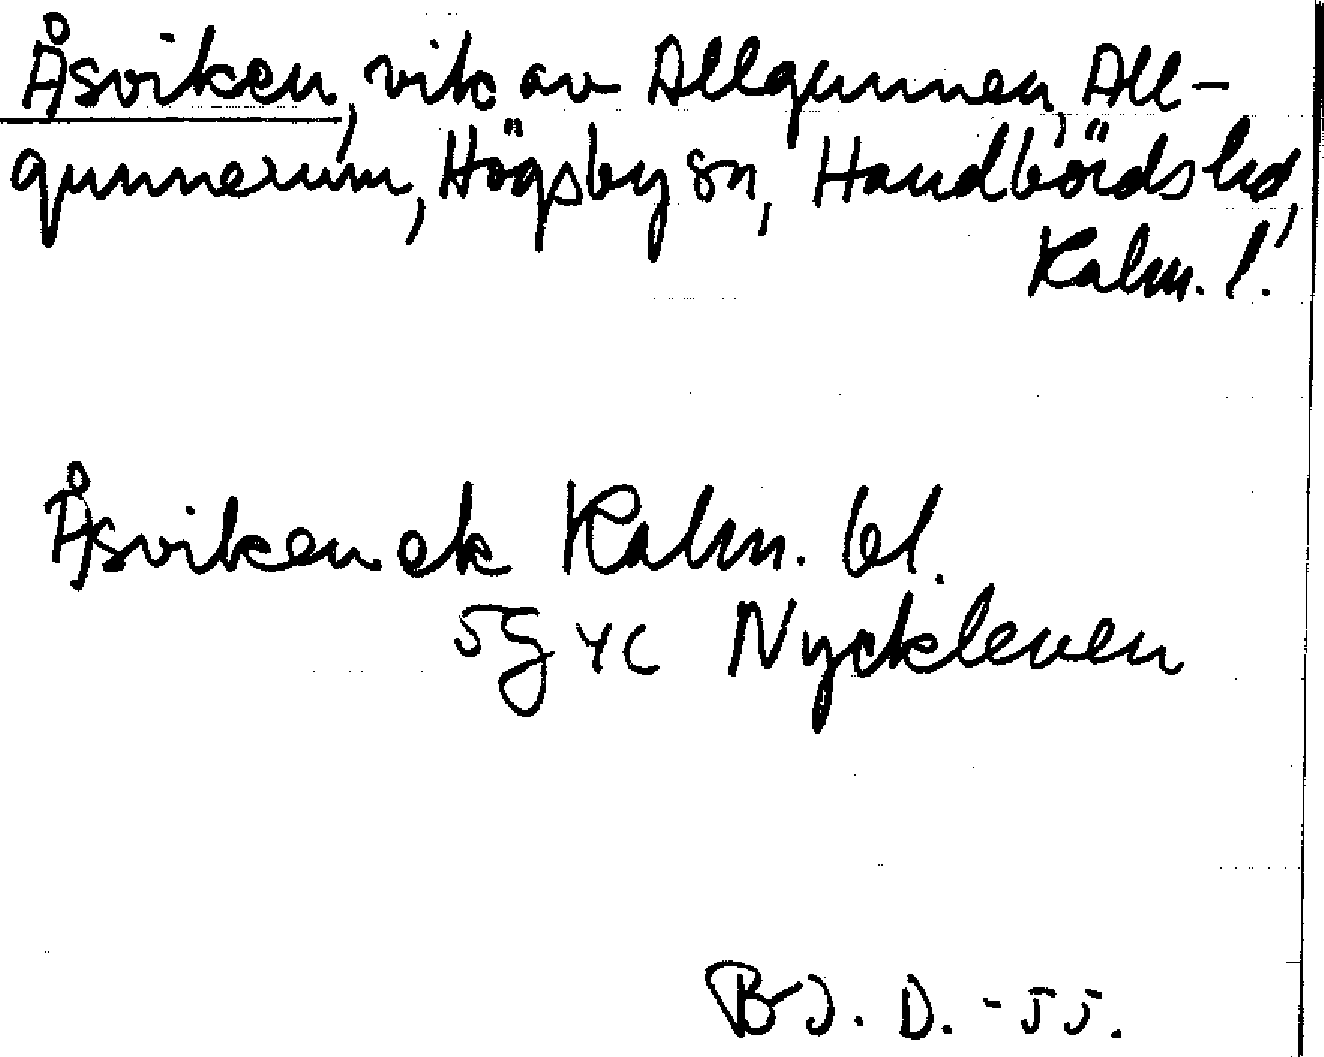 Åsviken, vik av Allgunnen, All-
gunnerum, Högsby sn, Handbörds hd,
Kalm. l.
Åsviken ek Kalm. bl.
5G 4c Nyckleven
BJ. D. -55.